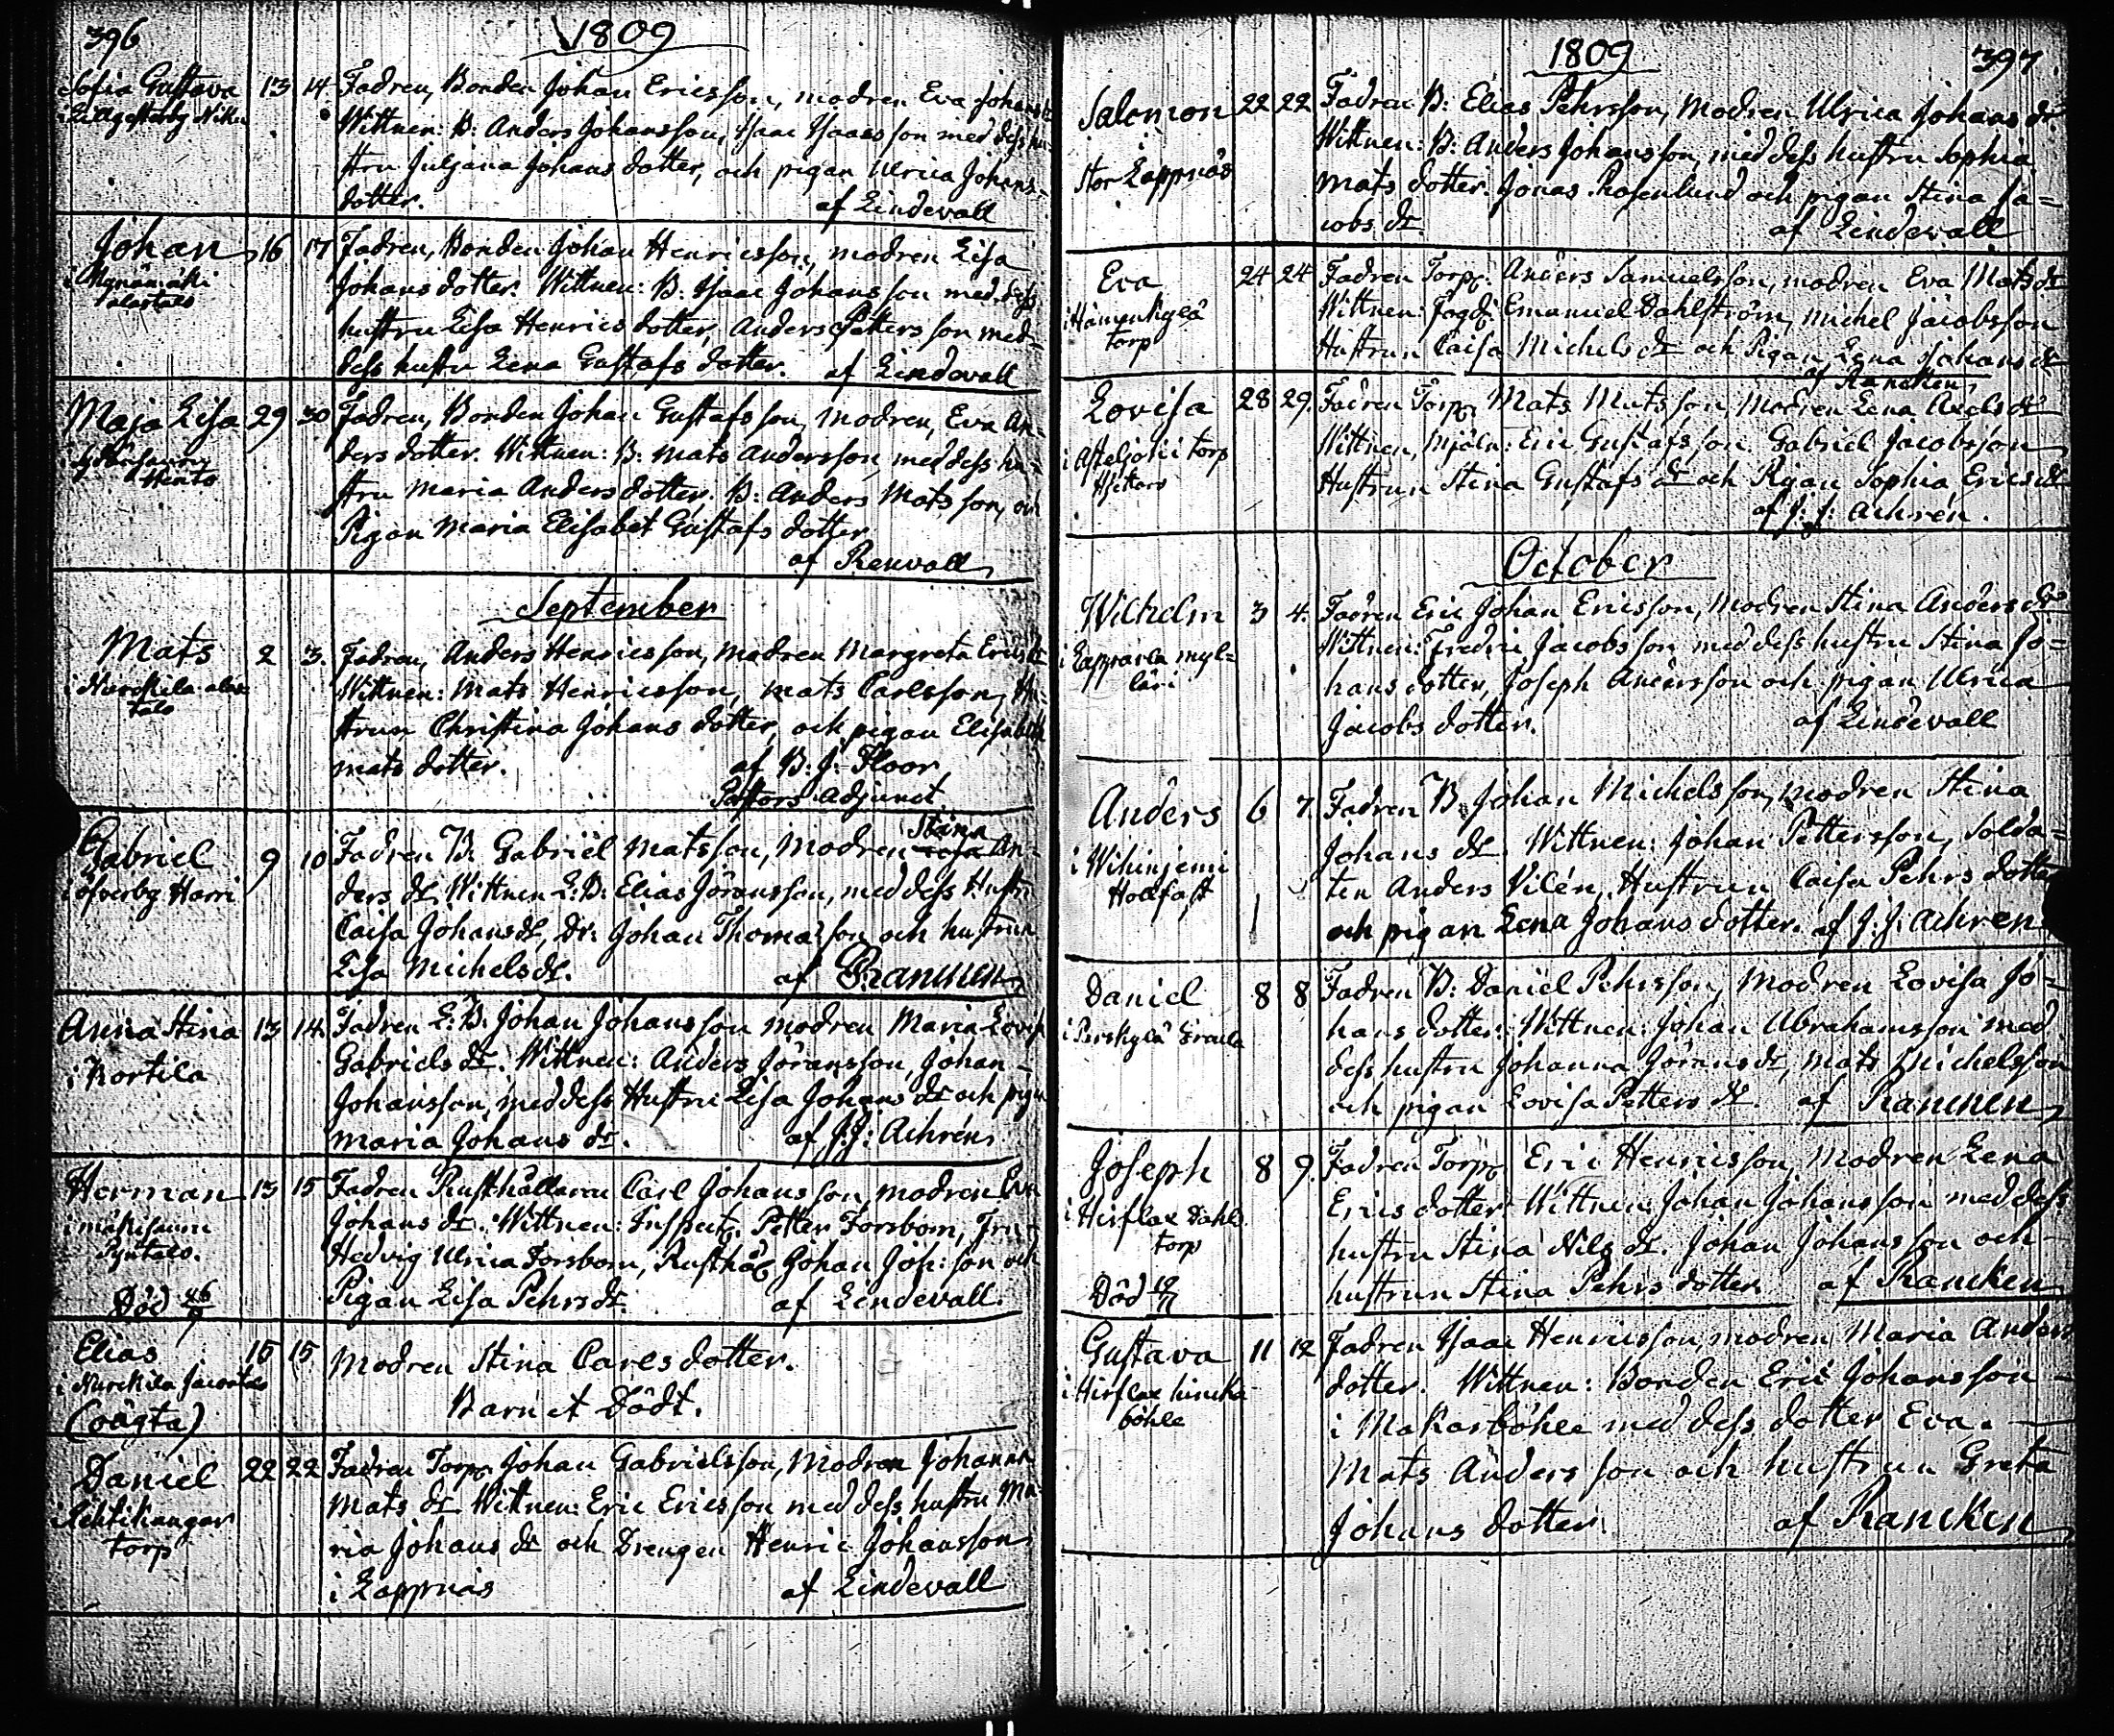 396
1809
Sofia Gustava 13 14. Fadren, Bonden Johan Ericsson, modren Eva Johans dr
i Wittnen: B: Anders Johansson, Isaac Isaacsson med dess hu-
stru Juljana Johans dotter, och pigan Ulrica Johans-
dotter. af Lindevall
Johan 16 17 Fadren, Bonden Johan Henricsson, modren Lisa
i alastalo Johans dotter. Wittnen: B: Isaac Johansson med dess
hustru Lisa Henrics dotter, Anders Petters son med
dess hustru Lena Gustafs dotter. af Lindevall
Maja Lisa 29 30 Fadren, Bonden Johan Gustafsson, Modren, Eva An-
ders dotter. Wittnen: B: Mats Andersson, med dess hu-
stru Maria Anders dotter. B: Anders Matsson, och
Pigan Maria Elisabet Gustafs dotter
af Renvall
September
Mats 2 3. Fadren, Anders Henricsson, modren Margreta Erics dr
i Nurckila alas- Wittnen: Mats Henricsson, Mats Carlsson, Hu-
talo strun Christina Johans dotter, och pigan Elisabeth
mats dotter. af B. J. Floor
Pastors Adjunct
Gabriel 9 10 Fadren B: Gabriel Matsson, Modren Stina An-
i öfverby Harri ders dr. Wittnen L: B: Elias Jöransson, med dess Hustru
Caisa Johans dr, Dr: Johan Thomasson och hustrun
Lisa Michels dr. af Rancken
Anna Stina 13 14. Fadren L: B: Johan Johansson modren Maria Lovisa
i Kortila Gabriels dr. Wittnen: Anders Jöransson, Johan
Johansson, med dess Hustru Lisa Johans dr och pigan
Maria Johans dr. af J: J: Achrén
Herman 13 15 Fadren Rusthållaren Carl Johansson, modren Eva
i Johans dr. Wittnen: Inspect. Petter Forsbom, Fru
Hedvig Ulrica Forsbom, Rusthål. Johan Joh: son och
Pigan Lisa Pehrs dr af Lindevall.
Död 26/9
Elias 15 15 Modren Stina Carlsdotter.
i Nurckila
(oägta) Barnet Dödt.
Daniel 22 22 Fadren Torp. Johan Gabrielsson, Modren Johanna
i Lehtikangar Mats dr Wittnen: Eric Ericsson med dess hustru Ma-
torp ria Johans dr och Drengen Henric Johansson
i Lappnäs af Lindevall
1809 397
Salomon 22 22 Fadren B: Elias Pehrsson, Modren Ulrica Johans dr
i Wittnen: B: Anders Johansson, med dess hustru Sophia
Stor Lappnäs Mats dotter. Jonas Rosenlund och pigan Stina Ja-
cobs dr. af Lindevall
Eva 24 24 Fadren Torp: Anders Samuelsson, modren Eva Mats dr
i Hämenkylä Wittnen: Fogd: Emanuel Dahlström, Michel Jacobsson
torp Hustrun Caisa Michels dr och Pigan Lena Johans dr
af Rancken
Lovisa 28 29. Fadren Torp, Mats Matsson, Modren Lena Axels dr
i torp Wittnen, Mjöln: Eric Gustafsson Gabriel Jacobsson
Hustrun Stina Gustafs dr och Pigan Sophia Erics dr
af J: J: Achrén.
October
Wilhelm 3 4. Fadren Eric Johan Ericsson, Modren Stina Anders dr
i Wittnen: Fredric Jacobsson med dess hustru Stina Jo-
hans dotter, Joseph Andersson och pigan Ulrica
Jacobs dotter. af Lindevall
Anders 6 7. Fadren B Johan Michelsson, Modren Stina
i Wihinjemi Johans dr. Wittnen: Johan Pettersson, Solda-
Hollfast ten Anders Vilén, Hustrun Caisa Pehrs dotter
och pigan Lena Johans dotter. af J: J: Achren
Daniel 8 8 Fadren B: Daniel Pehrsson, Modren Lovisa Jo-
i Perskylä hans dotter. Wittnen: Johan Abrahamsson med
dess hustru Johanna Jörans dr, Mats Michelsson
och pigan Lovisa Petters dr. af Rancken
Joseph 8 9. Fadren Torp. Eric Henricsson, Modren Lena
i Hirflax Dahls Erics dotter Wittnen Johan Johansson med dess
torp hustru Stina Nils dr. Johan Johansson och
Död hustrun Stina Pehrs dotter. af Rancken
Gustava 11 12 Fadren Isaac Henricsson, modren Maria Anders
i Hirflax dotter. Wittnen: Bonden Eric Johansson
böhle i Makarböhle med dess dotter Eva.
Mats Andersson och hustrun Greta
Johans dotter. af Rancken